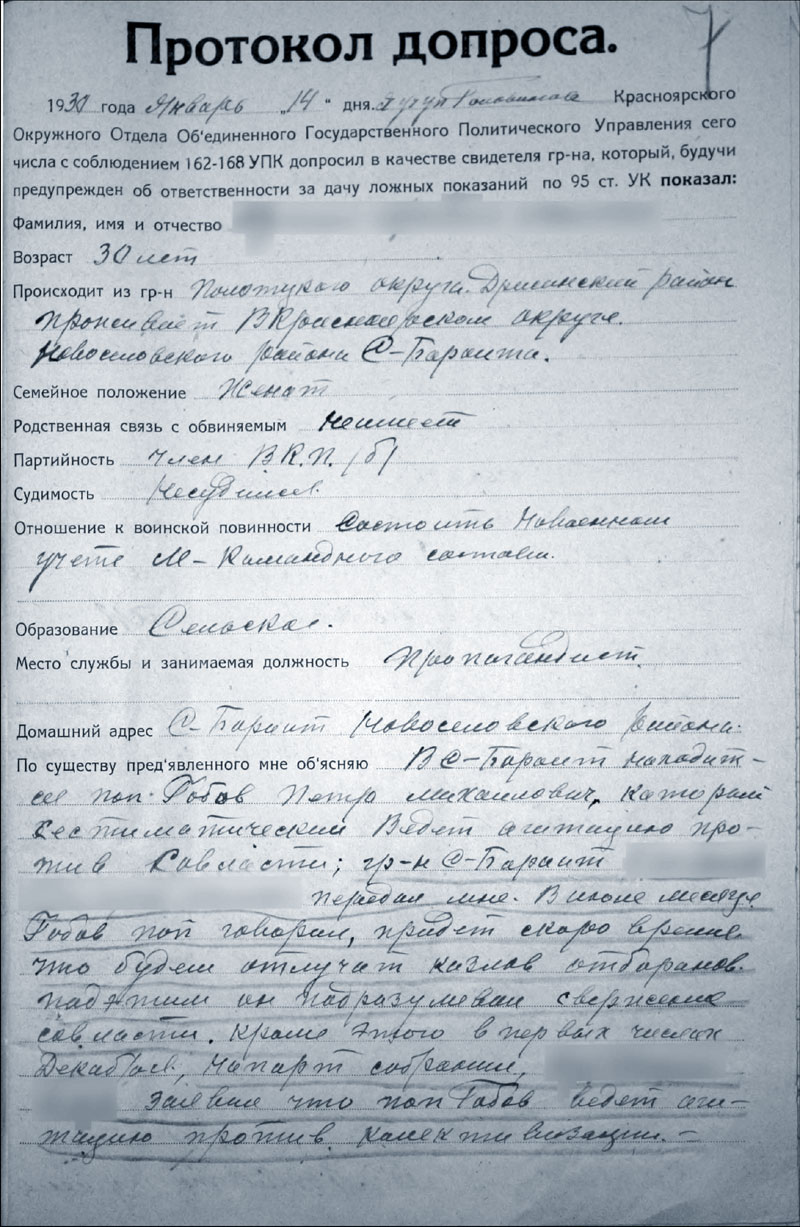 7
Протокол допроса.
1930 года Январь „14" дня. Красноярского
Окружного Отдела Об'единенного Государственного Политического Управления сего
числа с соблюдением 162-168 УПК допросил в качестве свидетеля гр-на, который, будучи
предупрежден об ответственности за дачу ложных показаний по 95 ст. УК показал:
Фамилия, имя и отчество
Возраст 30 лет
Происходит из гр-н Полотцкого округа Дрисинский район
проживает В Красноярском округе.
Новоселовского района С-Бараита.
Семейное положение Женат
Родственная связь с обвиняемым Неимеет
Партийность Член В.К.П. (б)
Судимость Несудился.
Отношение к воинской повинности Состоить Навоенном
учете М-Командного состава.
Образование Сельское.
Место службы и занимаемая должность Пропагандист.
Домашний адрес С-Бараит Новоселовского района.
По существу пред'явленного мне об'ясняю В С-Бараит находит-
ся поп Гобов Петр михаилович, каторый
сестиматический Ведет агитацию про-
тив Совласти; гр-н С-Бараит
передал мне. В июне месяце
Гобов поп говорил, придет скоро время
что будем отлучат казлов отбаранов.
падэтим он падразумевал свержение
совласти. Кроме этого в первых числах
Декабря, Напарт собрании,
заявил что поп Гобов ведет аги-
тацию против калективизации. -